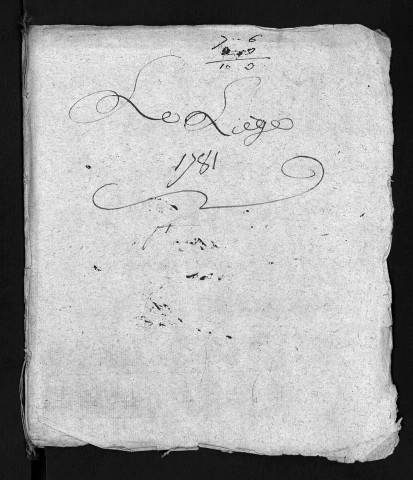 7 - 6
10 0
Le Liège
1781